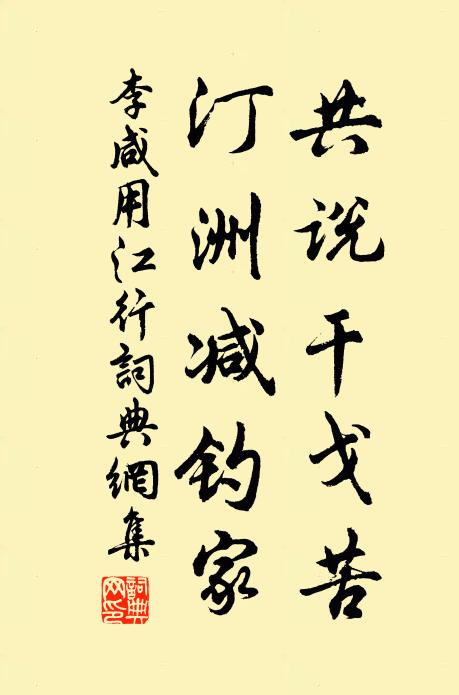 共说干戈苦
汀洲减钓家
李咸用江行詞典網集
詞典网印